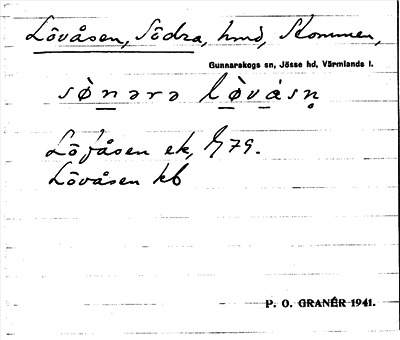 Lövåsen, Södra, hmd, Stommen,
Gunnarskogs sn, Jösse hd, Värmlands l.
sø̀nərə lø̀våsn̥
Löfåsen ek, 79.
Lövåsen kb
P. O. GRANÉR 1941.